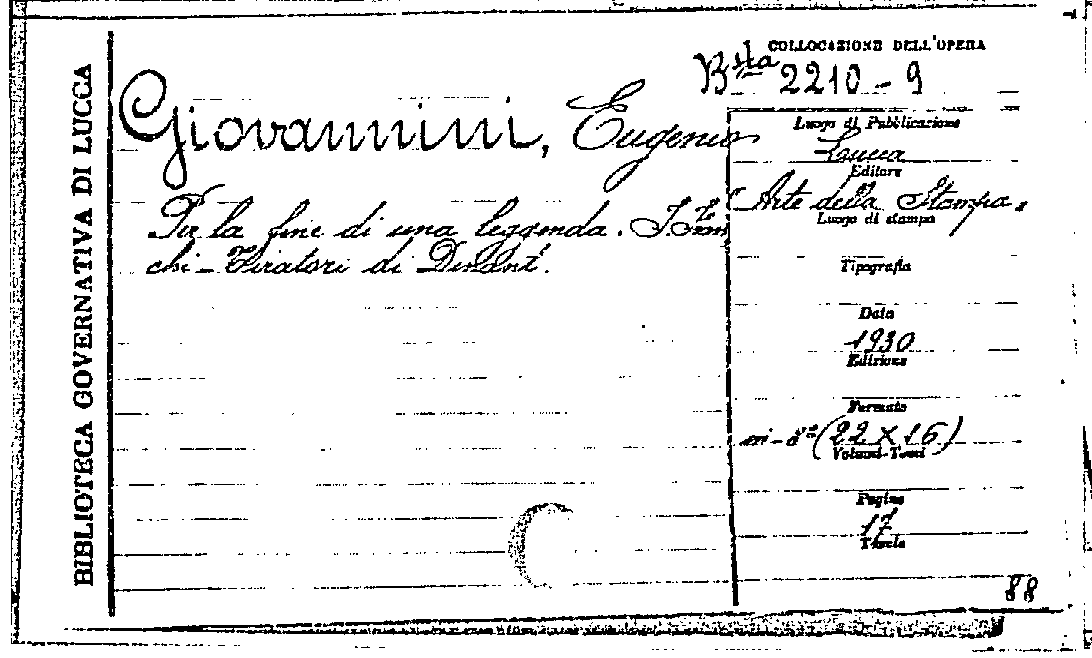 BIBLIOTECA GOVERNATIVA DI LUCCA
COLLOCAZIONE DELL'OPERA
Bsta 2210 - 9
Giovannini, Eugenio
Per la fine di una leggenda. I Fran
chi-Tiratori di Dinant.
Luogo di Pubblicazione
Lucca
Editore
Arte della Stampa.
Luogo di stampa
Tipografia
Data
1930
Edizione
Formato
in-8° (22 X 16)
Volumi-Tomi
Pagine
17
Tavole
88